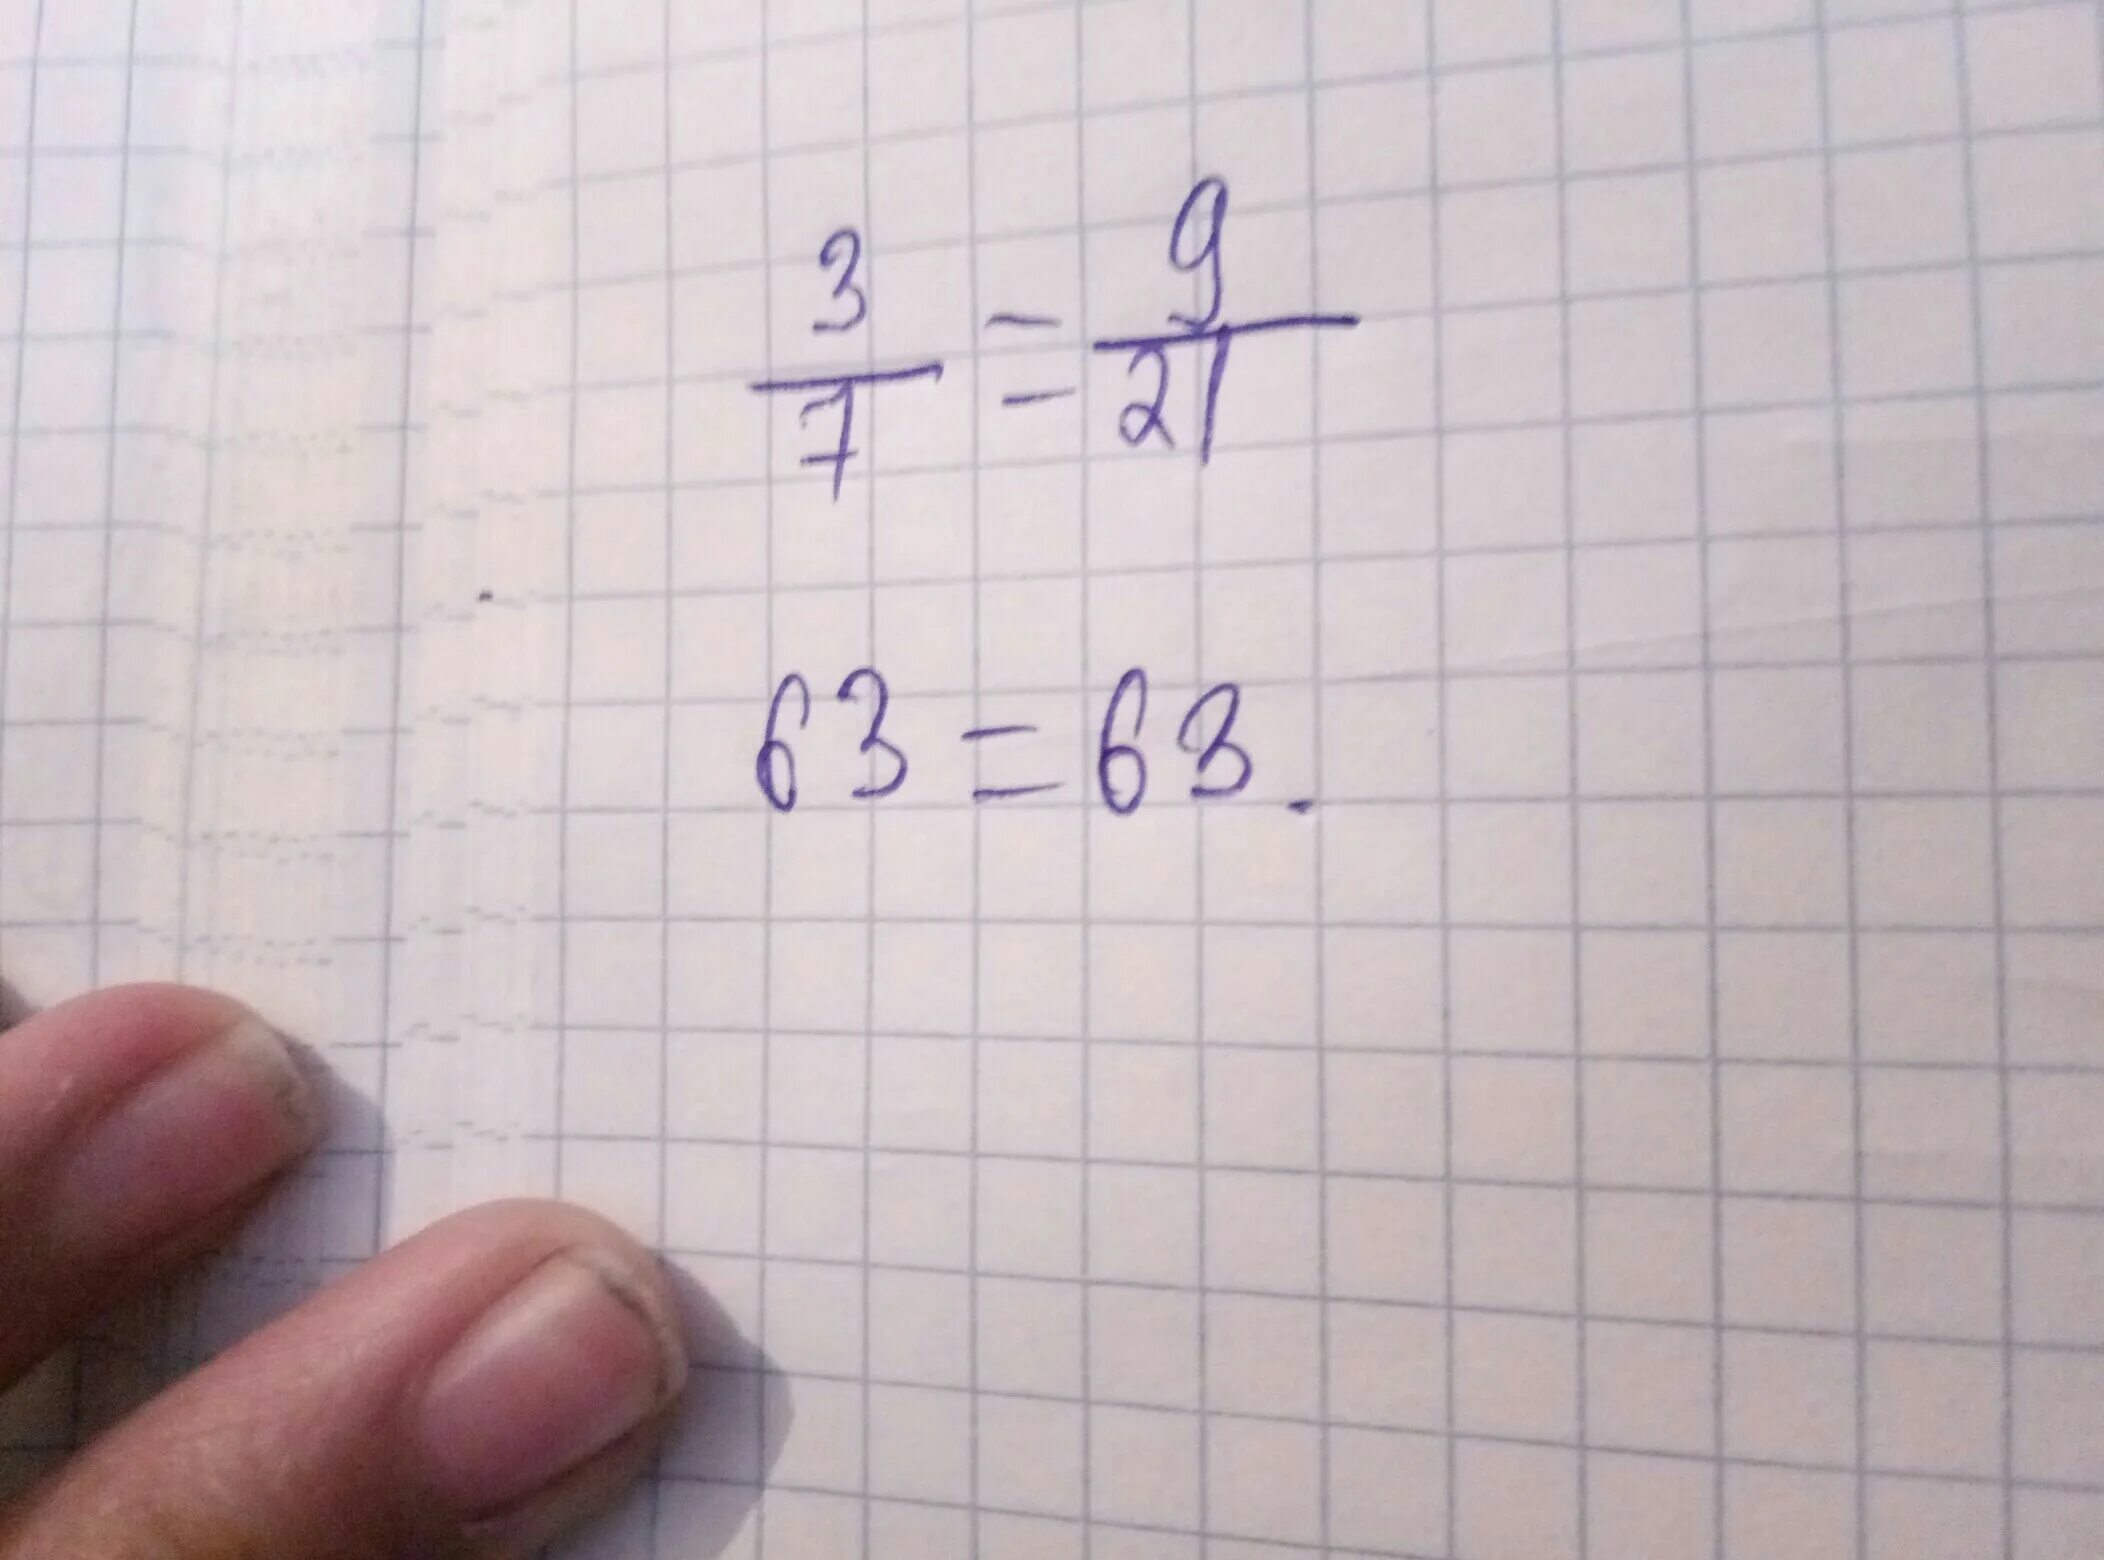 3/7 = 9/21
63 = 63.